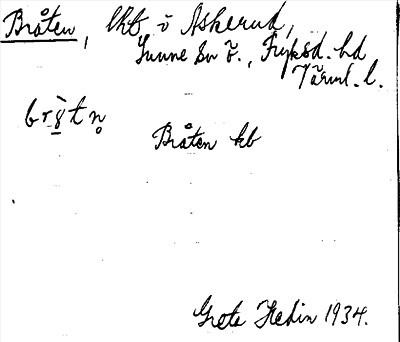 Bråten, lhb i Askerud,
Sunne sn ö., Fryksd. hd
Värml. l.
Bråten kb
Greta Hedin 1934.